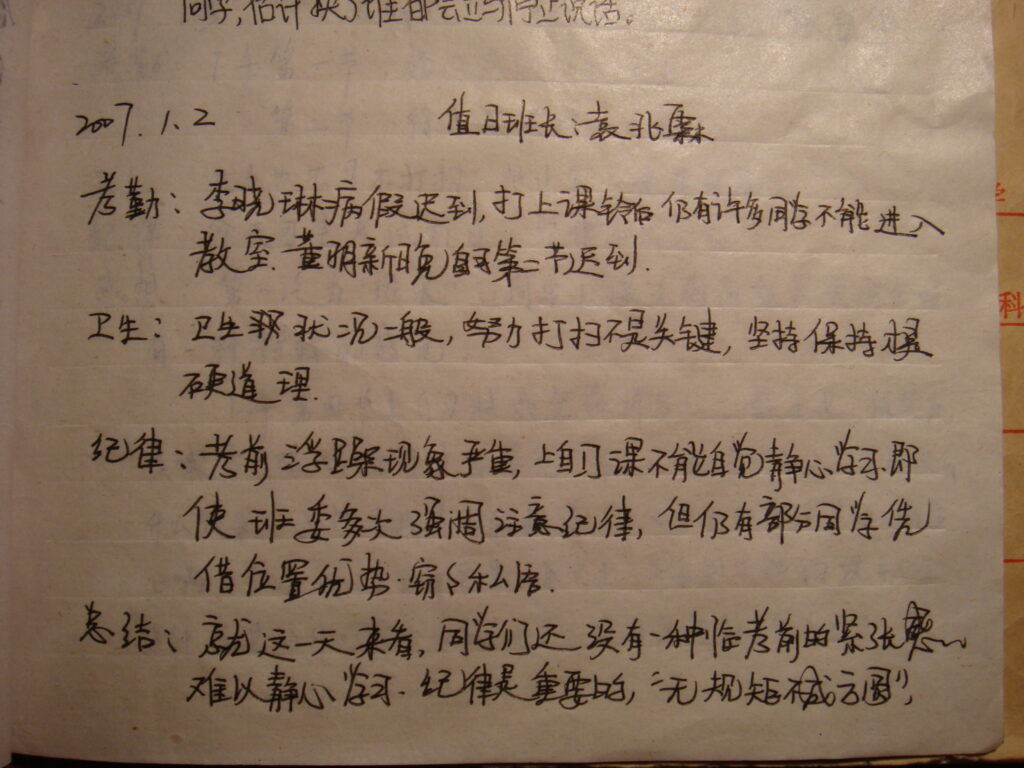 同学,估计换了谁都会立马停止说话。
2007.1.2 值日班长:袁兆霖
考勤:李晓琳病假迟到,打上课铃后仍有许多同学不能进入
教室.董明新晚自习第一节迟到.
卫生:卫生状况一般,努力打扫不是关键,坚持保持才是
硬道理.
纪律:考前浮躁现象严重,上自习课不能自觉静心学习.即
使班委多次强调注意纪律,但仍有部分同学凭
借位置优势.窃々私语.
总结:就这一天来看,同学们还没有一种临考前的紧张感..
难以静心学习.纪律是重要的,“无规矩不成方圆”,
学
科